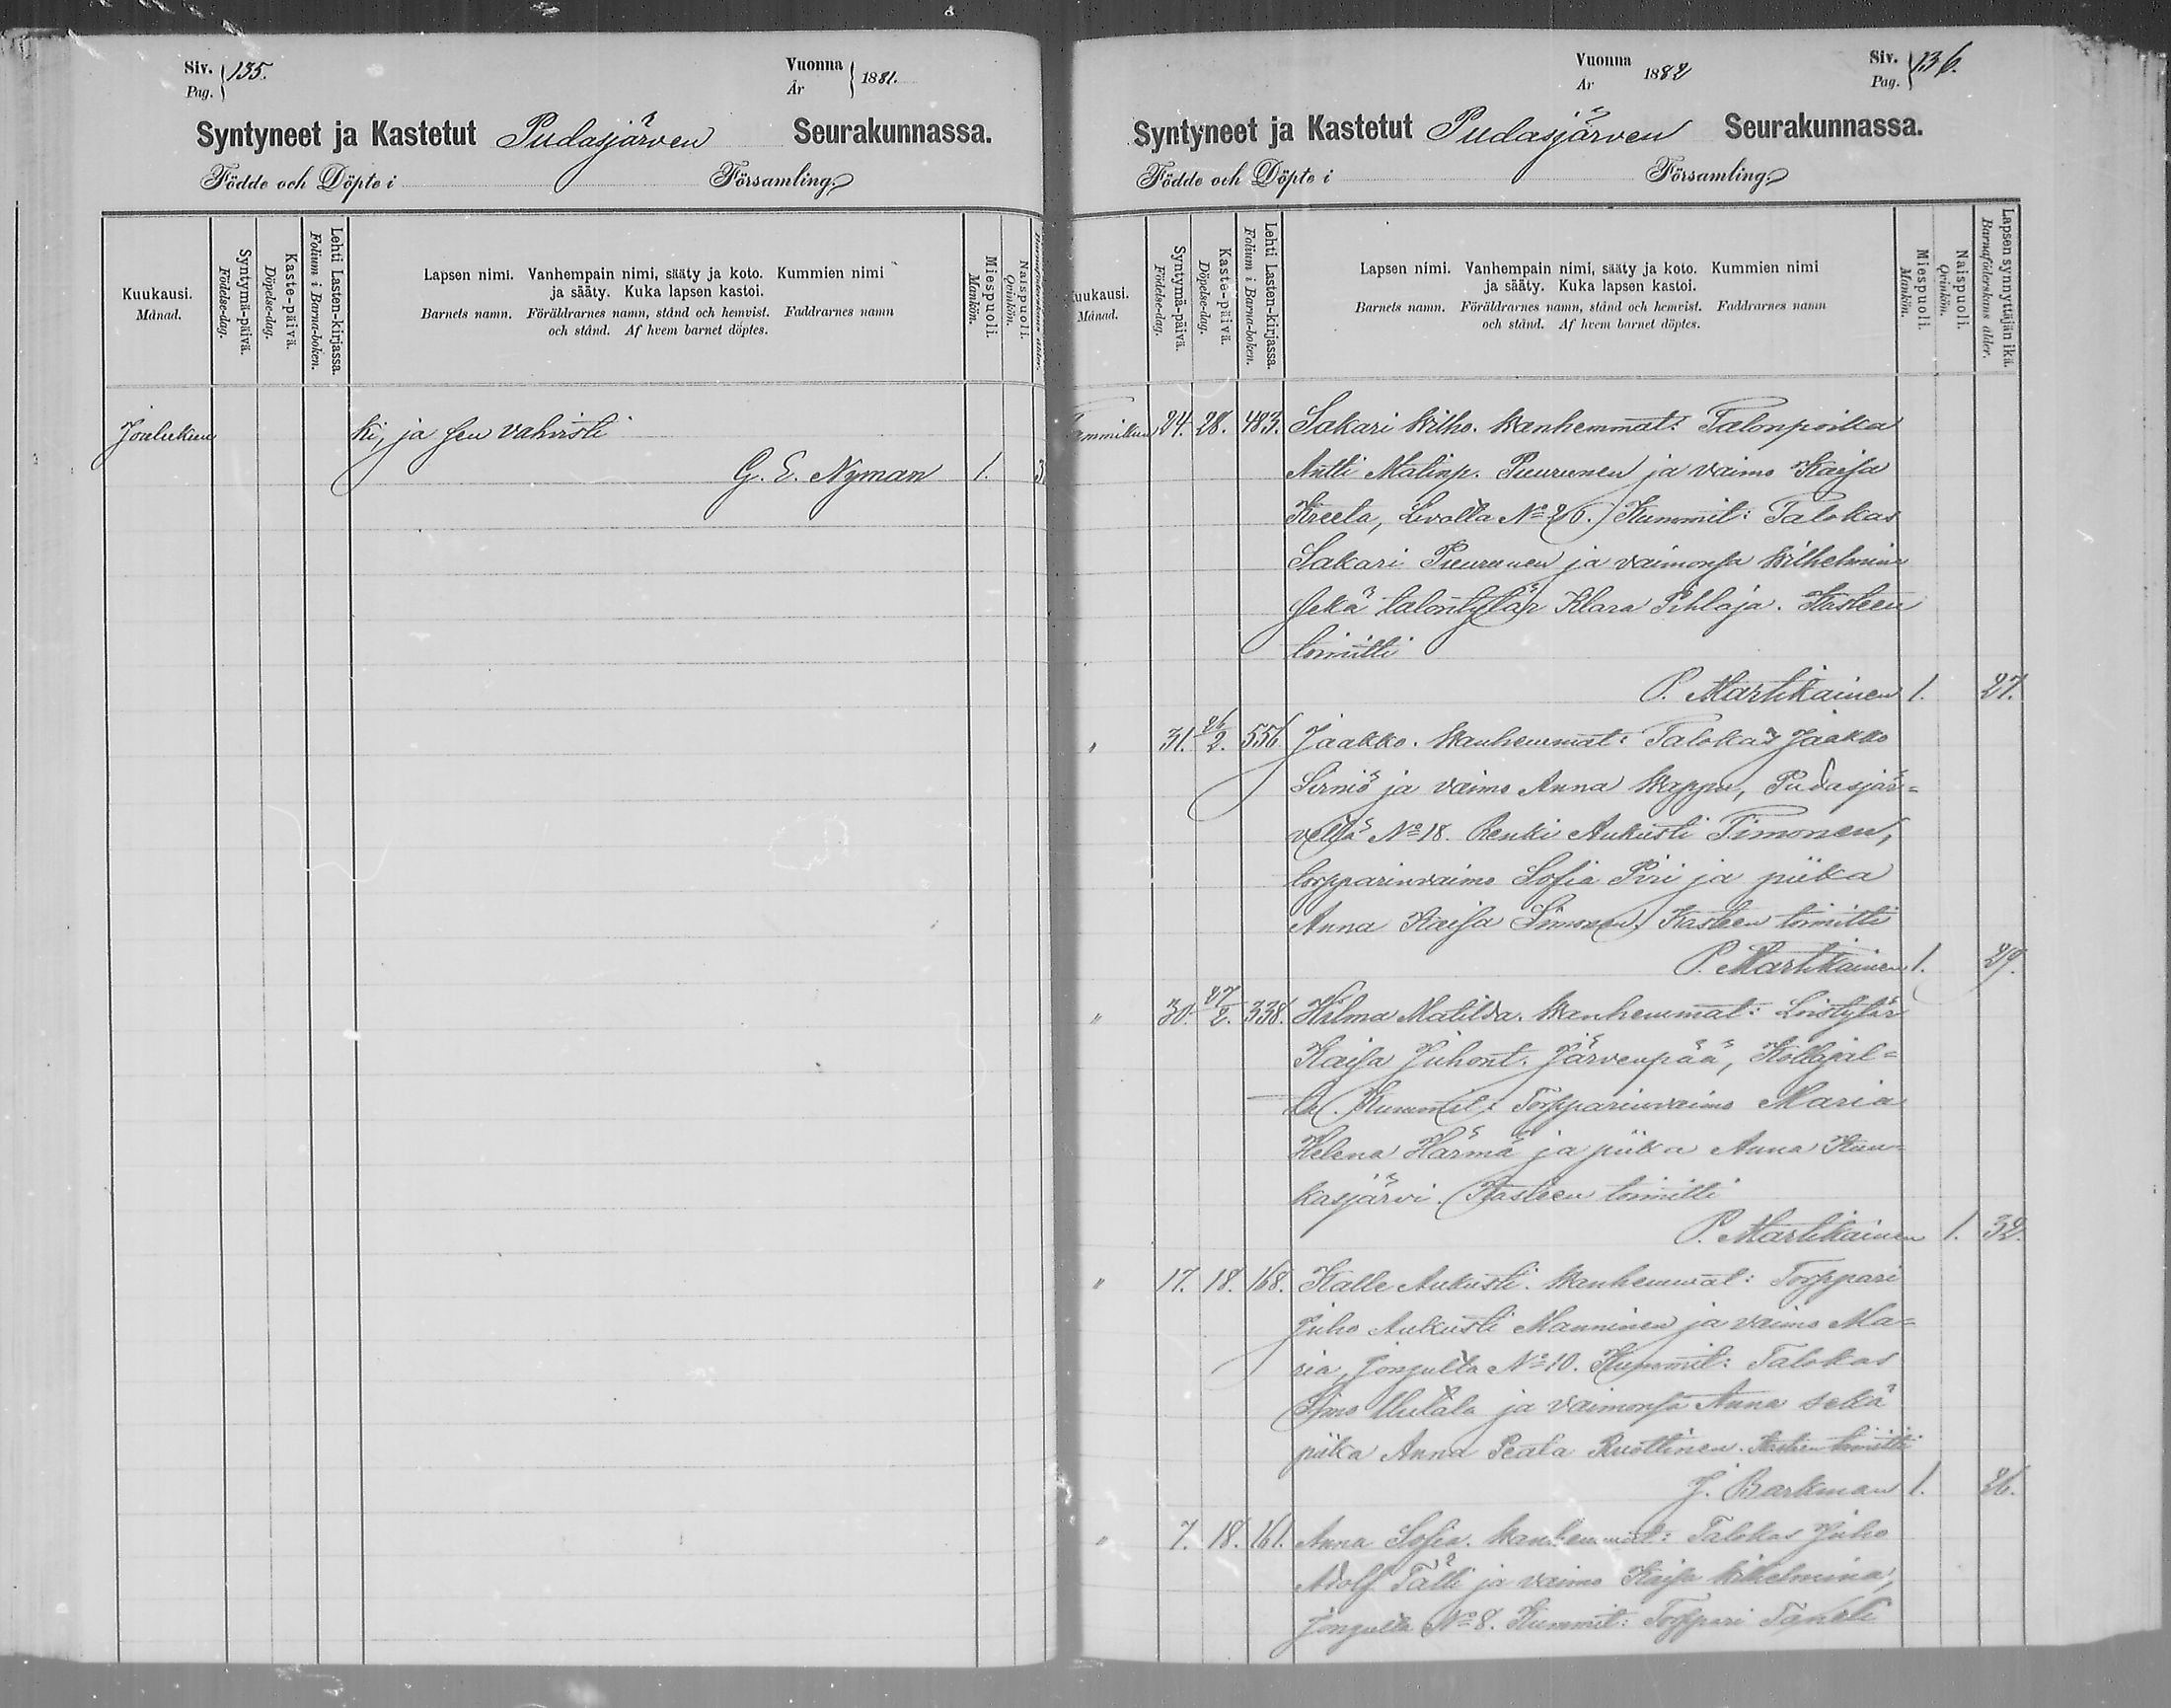 Siv. Pag. 135.
Vuonna År 1881.
Syntyneet ja Kastetut Pudasjärven Seurakunnassa.
Födde och Döpte i Församling.
Kuukausi. Månad.
Syntymä-päivä. Födelse-dag.
Kaste-päivä. Döpelse-dag.
Lehti Lasten-kirjassa. Folium i Barna-boken.
Lapsen nimi. Vanhempain nimi, sääty ja koto. Kummien nimi
ja sääty. Kuka lapsen kastoi.
Barnets namn. Föräldrarnes namn, stånd och hemvist. Faddrarnes namn
och stånd. Af hvem barnet döptes.
Miespuoli. Mankön.
Naispuoli. Qvinkön.
Joulukuu ki, ja sen vahvisti
G. E. Nyman 1. 3
Vuonna År 1882
Siv. Pag. 136.
Syntyneet ja Kastetut Pudasjärven Seurakunnassa.
Födde och Döpte i Församling.
Kuukausi. Månad.
Syntymä-päivä. Födelse-dag.
Kaste-päivä. Döpelse-dag.
Lehti Lasten-kirjassa. Folium i Barna-boken.
Lapsen nimi. Vanhempain nimi, sääty ja koto. Kummien nimi
ja sääty. Kuka lapsen kastoi.
Barnets namn. Föräldrarnes namn, stånd och hemvist. Faddrarnes namn
och stånd. Af hvem barnet döptes.
Miespuoli. Mankön.
Naispuoli. Qvinkön.
Lapsen synnyttäjän ikä. Barnaföderskans ålder.
Tammikuu 24. 28. 483. Sakari Wilho. Wanhemmat: Talonpoika
Antti Matinp. Puurunen ja vaimo Kaisa
Kreeta, Livolta No 26. Kummit: Talokas
Sakari Puurunen ja vaimonsa Wilhelmina
sekä talontytär Klara Pihlaja. Kasteen
toimitti
P. Martikainen 1. 27.
" 31. 26/2. 556 Jaakko. Wanhemmat: Talokas Jaakko
Sirniö ja vaimo Anna Wappu, Pudasjär=
veltä No 18. Renki Aukusti Timonen,
torpparinvaimo Sofia Piri ja piika
Anna Kaisa Simonen. Kasteen toimitti
P. Martikainen 1. 29.
" 30. 27/2. 338. Hilma Matilda. Wanhemmat: Loistytär
Kaisa Juhont. Järvenpää, Kollajal=
ta. Kummit: Torpparinvaimo Maria
Helena Härmä ja piika Anna Kuu=
kasjärvi. Kasteen toimitti
P. Martikainen 1. 32.
" 17. 18. 168. Kalle Aukusti. Wanhemmat: Torppari
Juho Aukusti Manninen ja vaimo Ma=
ria, Jongulta No 10. Kummit: Talokas
Simo ja vaimonsa Anna sekä
piika Anna Peata Ruottinen. Kasteen toimitti
J. Barkman 1. 26.
" 7. 18. 161. Anna Sofia. Wanhemmat: Talokas Juho
Adolf Tälli ja vaimo Kaisa Wilhelmina,
Jongulta No 8. Kummit: Torppari Taneli